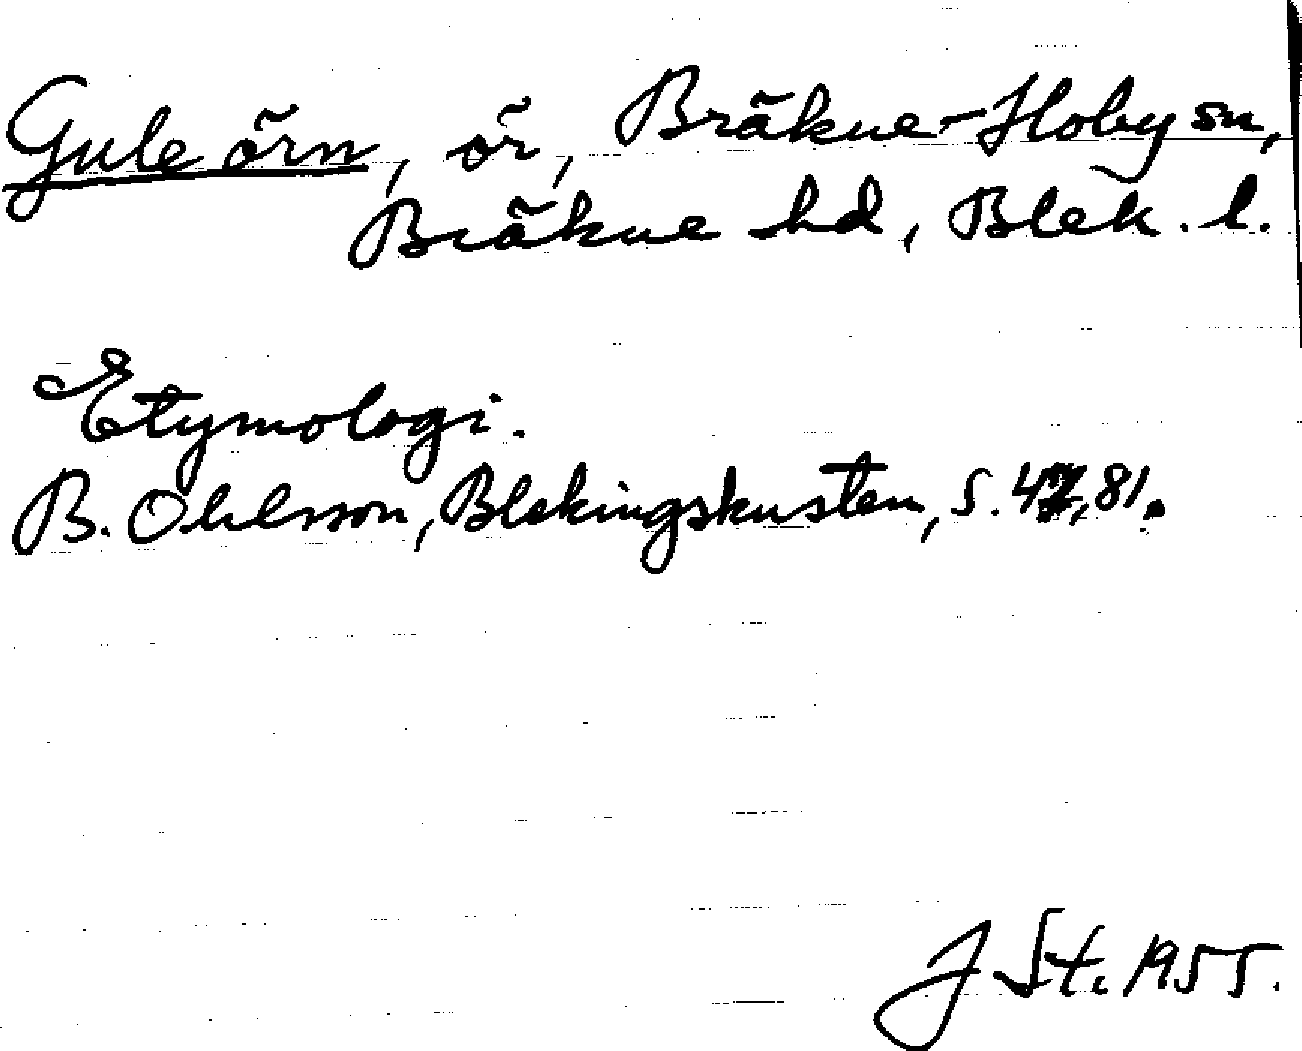 Gule örn, ör, Bräkne-Hoby sn,
Bräkne hd, Blek. l.
Etymologi.
B. Ohlsson, Blekingskusten, s. 47, 81.
J St. 1955.